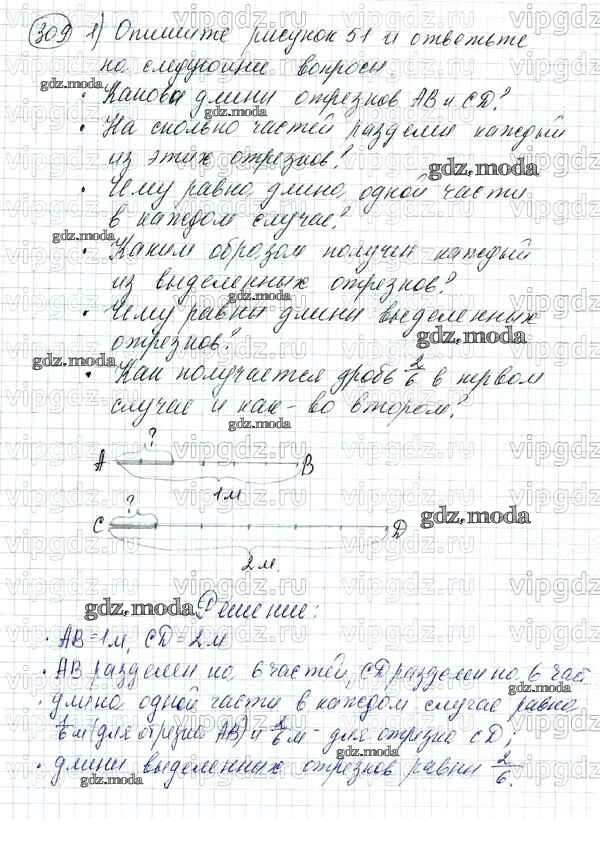 309 1) Опишите рисунок 51 и ответьте
на следующие вопросы.
• Каковы длины отрезков AB и CD?
• На сколько частей разделен каждый
из этих отрезков?
• Чему равна длина одной части
в каждом случае?
• Каким образом получен каждый
из выделенных отрезков?
• Чему равны длины выделенных
отрезков?
• Как получается дробь 2/6 в первом
случае и как - во втором?
?
A B
1 м
?
C D
2 м
Решение:
• AB = 1м, CD = 2м
• AB разделен на 6 частей, CD разделен на 6 част
• длина одной части в каждом случае равна
1/6 м (для отрезка AB) и 2/6 м - для отрезка CD;
• длины выделенных отрезков равны 2/6.
gdz.moda
vipgdz.ru